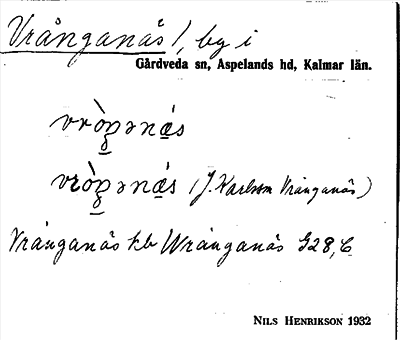 Vrånganäs /, by i
Gårdveda sn, Aspelands hd, Kalmar län.
vròŋənás
vròŋənás (J. Karlsson Vrånganäs)
Vrånganäs kb Wrånganäs G28, C
NILS HENRIKSON 1932